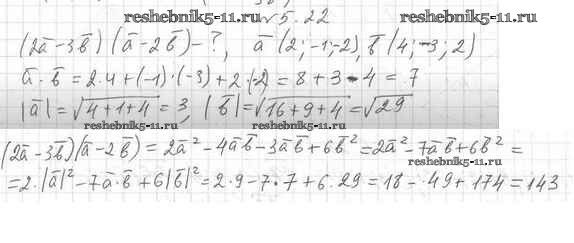 reshebnik5-11.ru
reshebnik5-11.ru № 5.22
(2a̅ - 3b̅)(a̅ - 2b̅) - ?, a̅(2; -1; -2), b̅(4; -3; 2)
a̅ · b̅ = 2·4 + (-1)·(-3) + 2·(-2) = 8 + 3 - 4 = 7
|a̅| = √4+1+4 = 3, |b̅| = √16+9+4 = √29
reshebnik5-11.ru
reshebnik5-11.ru
(2a̅ - 3b̅)(a̅ - 2b̅) = 2a̅² - 4a̅b̅ - 3a̅b̅ + 6b̅² = 2a̅² - 7a̅b̅ + 6b̅² =
reshebnik5-11.ru
= 2·|a̅|² - 7a̅·b̅ + 6|b̅|² = 2·9 - 7·7 + 6·29 = 18 - 49 + 174 = 143
reshebnik5-11.ru